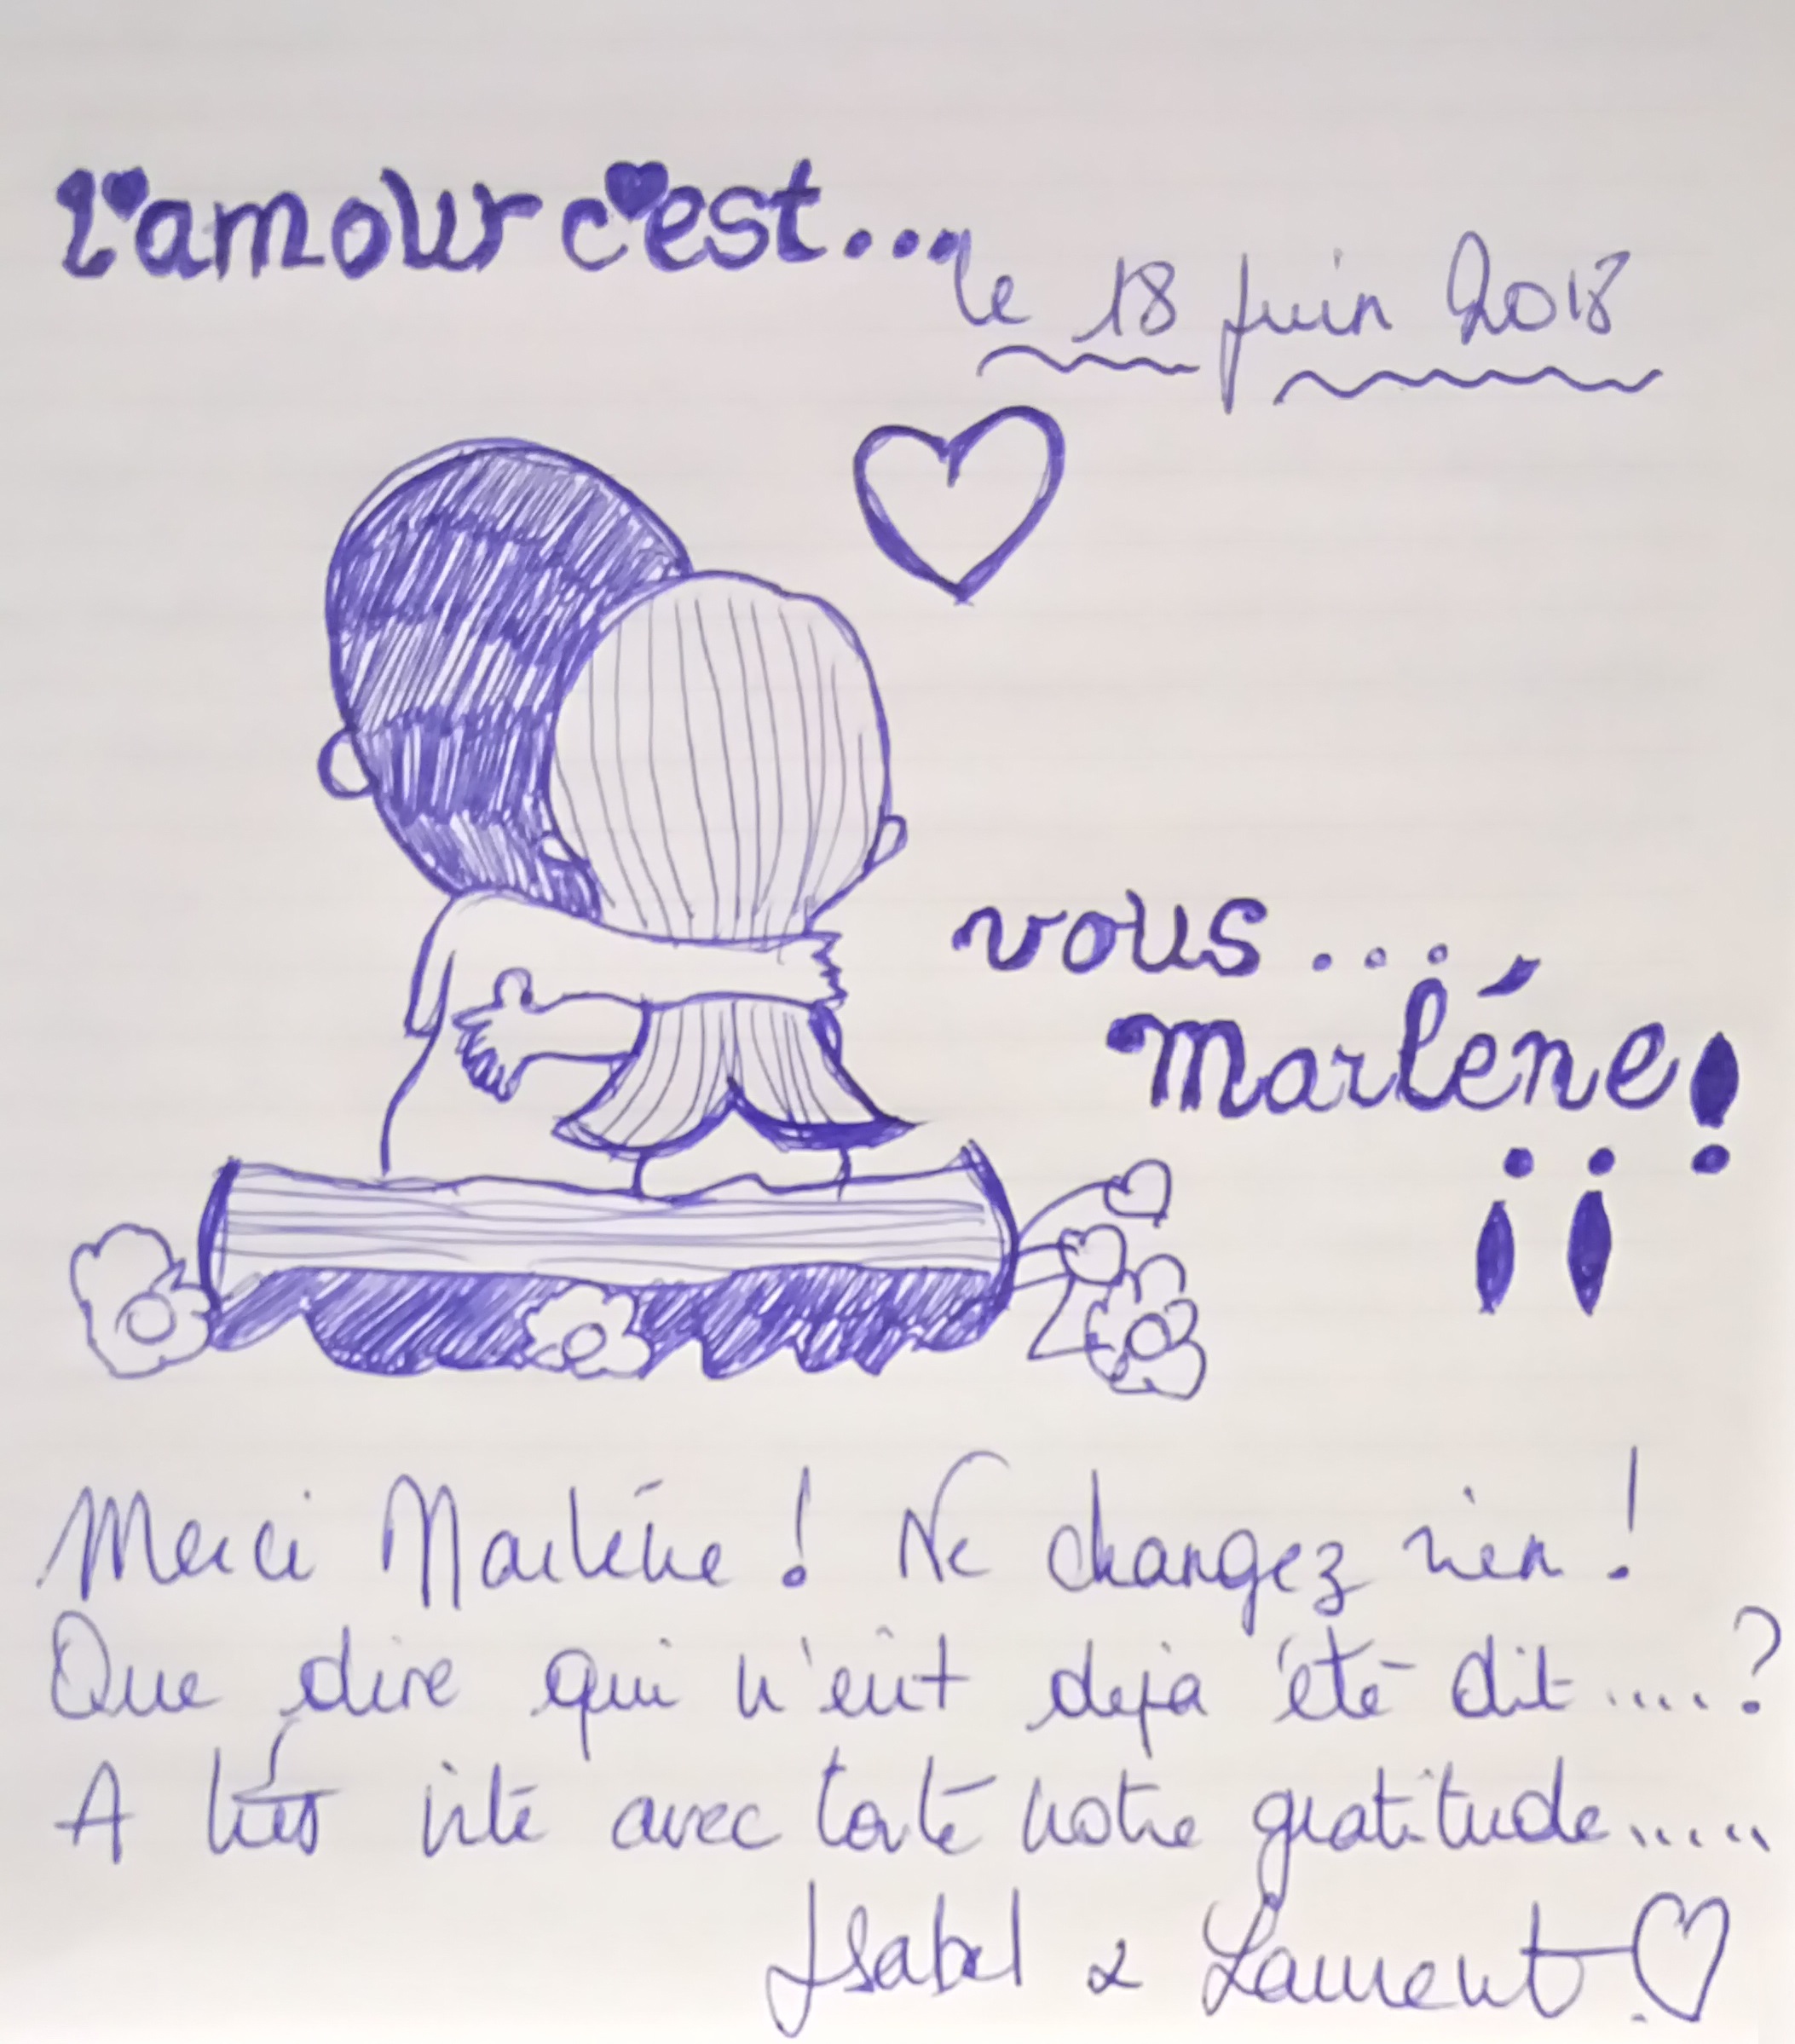 l'amour c'est...
le 18 juin 2018
vous....
Marléne!
¡¡
Merci Marlène ! Ne changez rien !
Que dire qui n'eût deja été dit.....?
A très vite avec toute notre gratitude.....
Isabel & Laurent